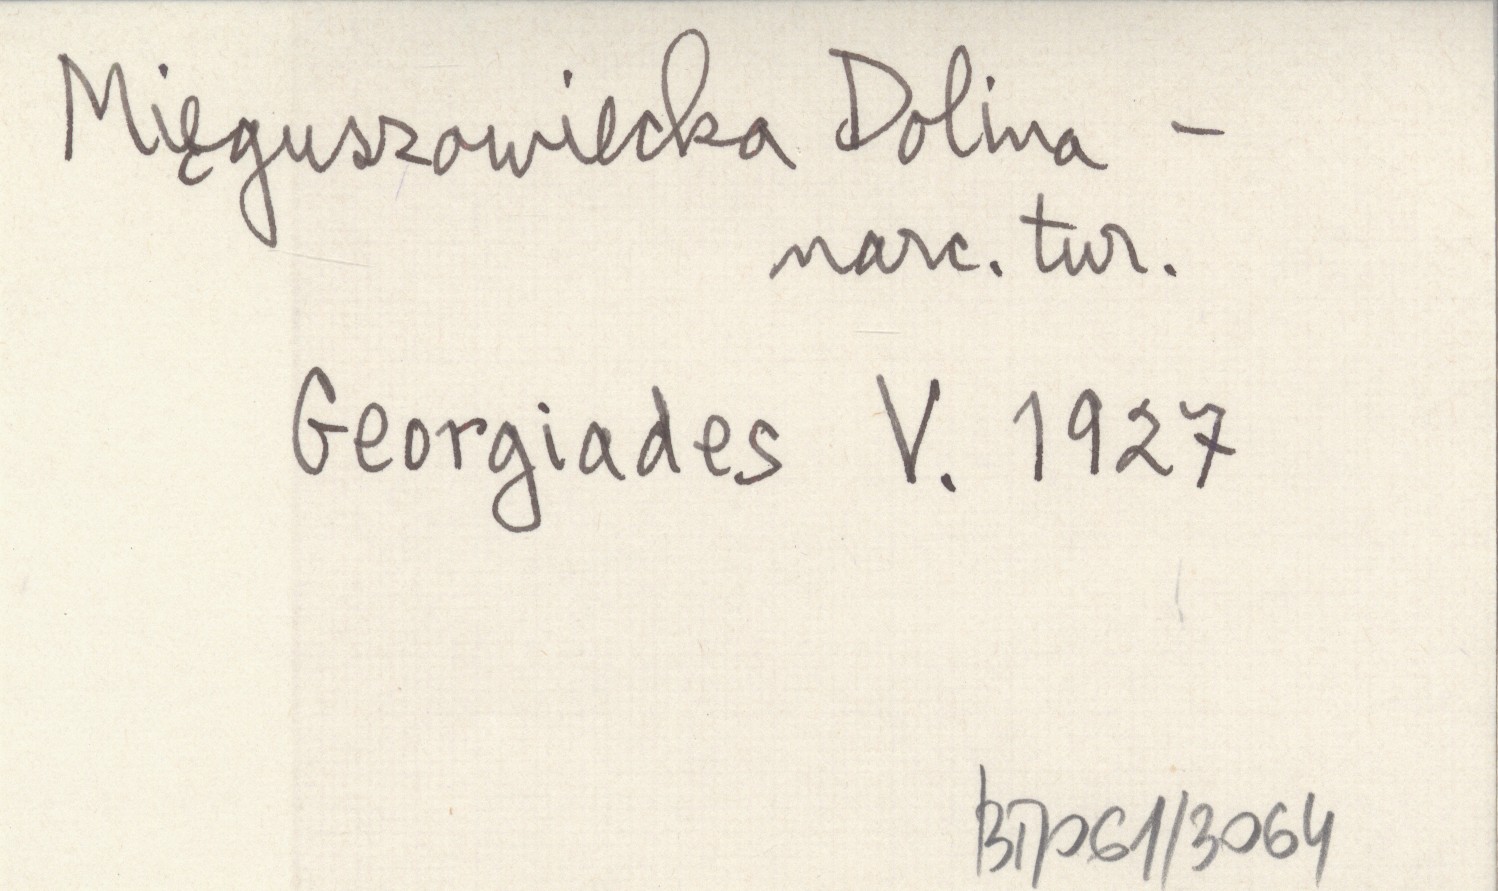 Mięguszowiecka Dolina –
narc. tur.
Georgiades V. 1927